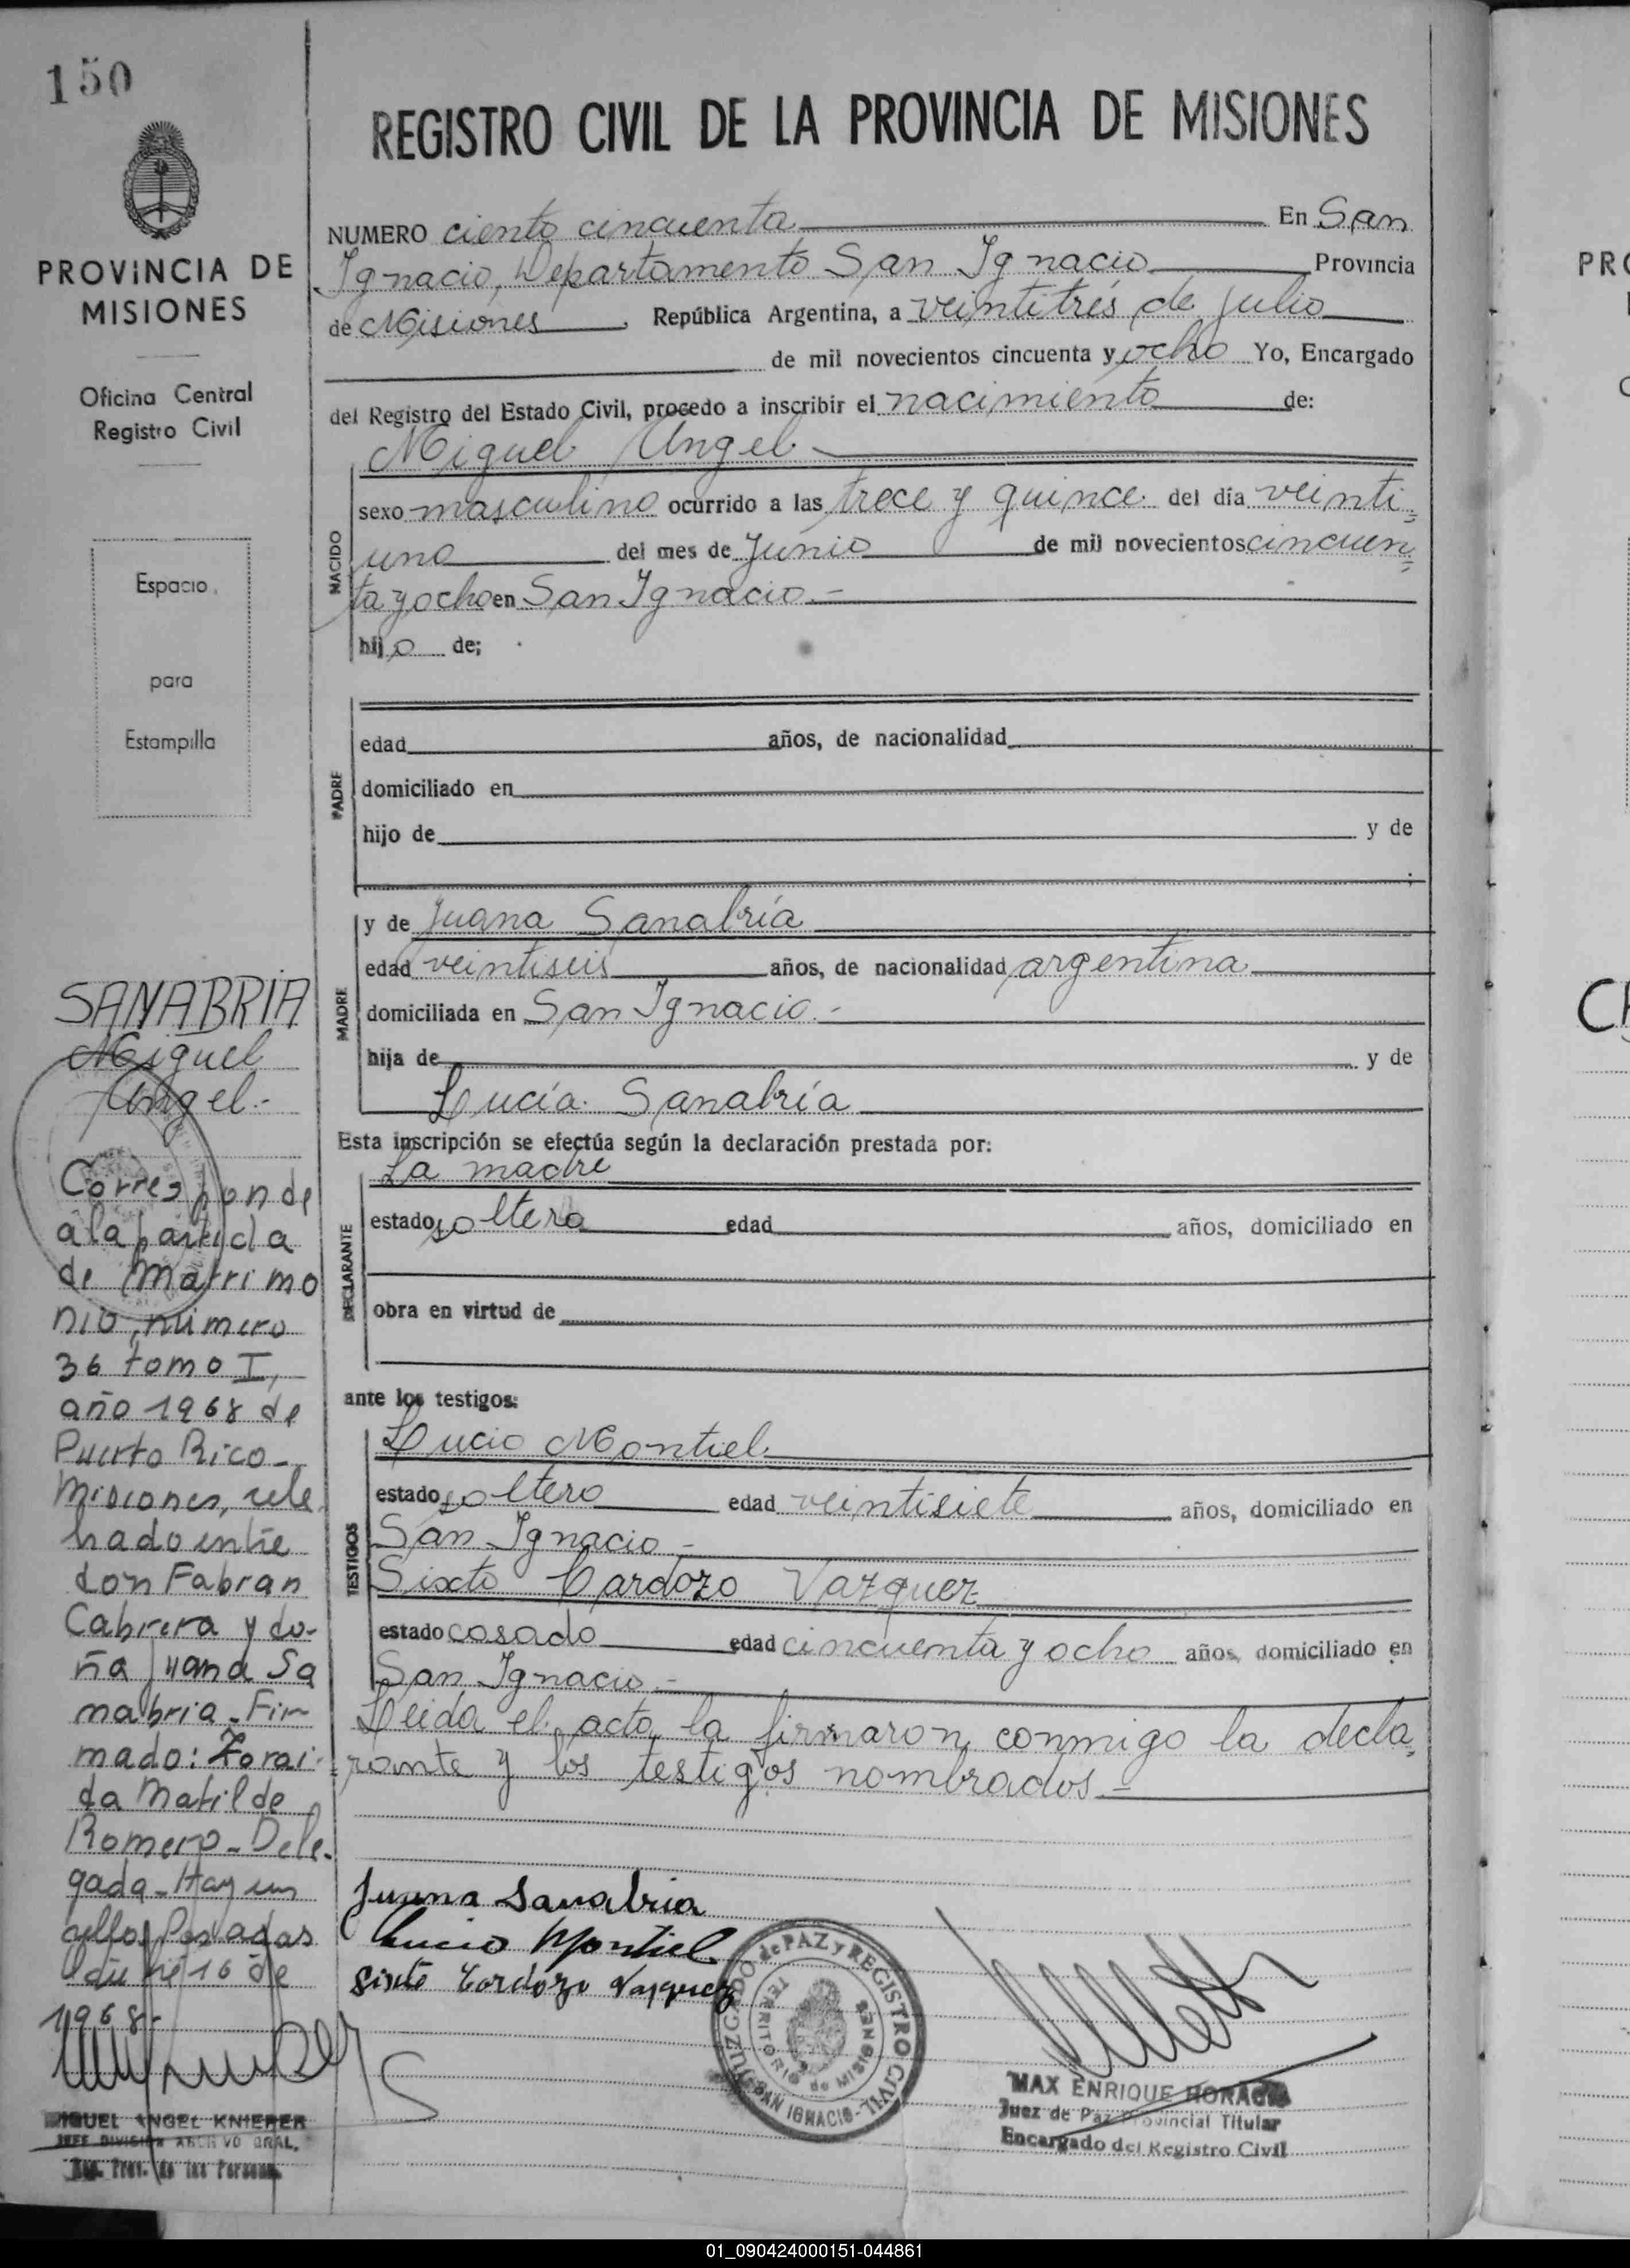 150
PROVINCIA DE
MISIONES
Oficina Central
Registro Civil
Espacio
para
Estampilla
SANABRIA
Miguel
Angel.-
Corresponde
a la partida
de Matrimo
nio, número
36 tomo I,
año 1968 de
Puerto Rico-
Misiones, cele
brado entre
don Fabran
Cabrera y do-
ña Juana Sa
nabria. Fir
mado: Zorai-
da Matilde
Romero-Dele-
gada-Hay un
sello Posadas
16 de
1968-
MIGUEL ANGEL KNIERER
JEFE DIVISION ARCHIVO GRAL.
REGISTRO CIVIL DE LA PROVINCIA DE MISIONES
NUMERO ciento cincuenta En San
Ignacio, Departamento San Ignacio Provincia
de Misiones, República Argentina, a veintitrés de julio
de mil novecientos cincuenta y ocho Yo, Encargado
del Registro del Estado Civil, procedo a inscribir el nacimiento de:
Miguel Angel
NACIDO
sexo masculino ocurrido a las trece y quince del día veinti=
uno del mes de Junio de mil novecientos cincuen=
ta y ocho en San Ignacio.-
hijo de;
PADRE
edad años, de nacionalidad
domiciliado en
hijo de y de
;
MADRE
y de Juana Sanabría
edad veintiseis años, de nacionalidad argentina
domiciliada en San Ignacio.-
hija de y de
Lucía Sanabría
Esta inscripción se efectúa según la declaración prestada por:
DECLARANTE
La madre
estado soltera edad años, domiciliado en
obra en virtud de
ante los testigos:
TESTIGOS
Lucio Montiel
estado soltero edad veintisiete años, domiciliado en
San Ignacio.-
Sixto Cardozo Vazquez
estado casado edad cincuenta y ocho años, domiciliado en
San Ignacio.-
Leida el acta la firmaron conmigo la decla=
rante y los testigos nombrados.-
Juana Sanabria
Lucio Montiel
Sixto Cardozo Vazquez
JUZGADO de PAZ y REGISTRO CIVIL
SAN IGNACIO
TERRITORIO de MISIONES
MAX ENRIQUE HORACIO
Juez de Paz Provincial Titular
Encargado del Registro Civil
PRO
CH
01_090424000151-044861